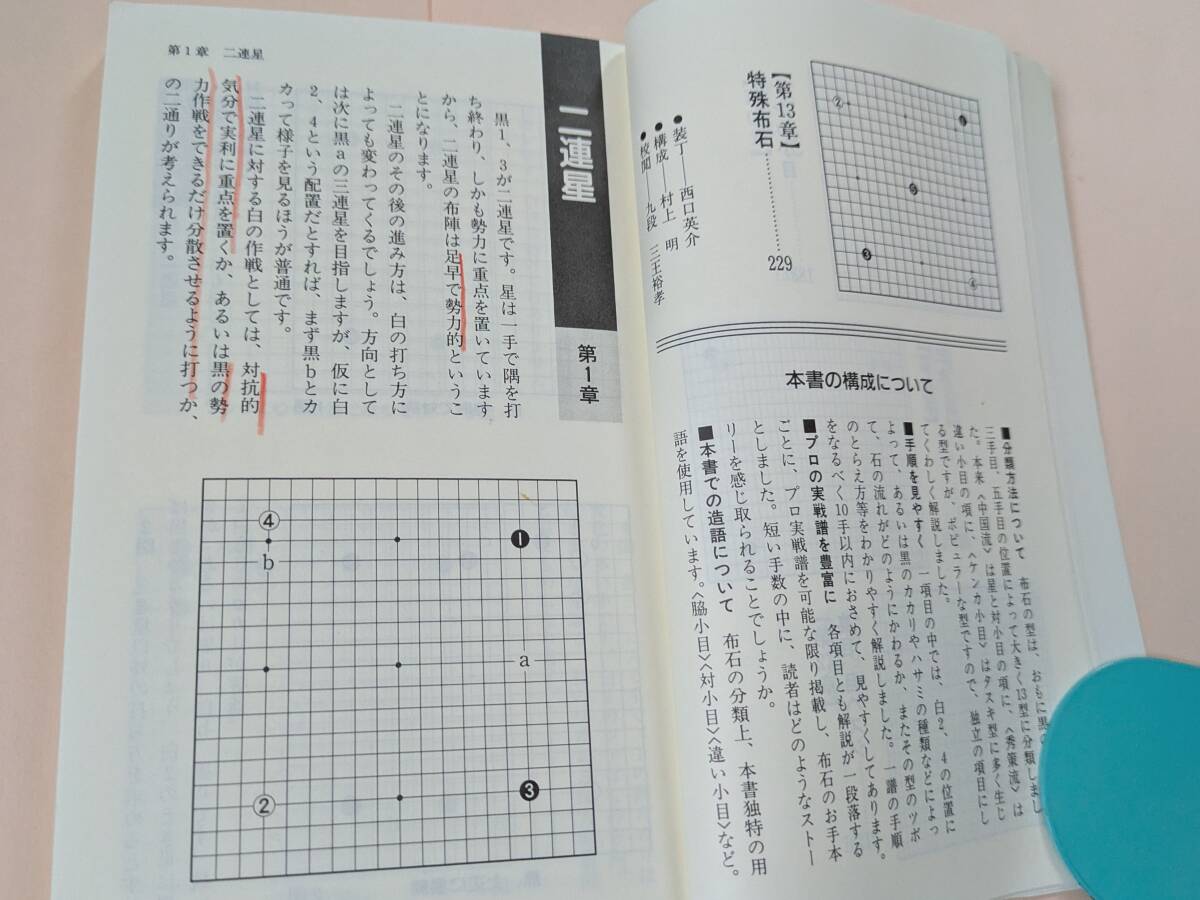 【第13章】
特殊布石…………… 229
②
❶
❺
❸
④
●装丁——西口英介
●構成——村上 明
●校閲——九段 三王裕孝
本書の構成について
■分類方法について 布石の型は、おもに黒の
三手目、五手目の位置によって大きく13型に分類しまし
た。本来〈中国流〉は星と対小目の項に、〈秀策流〉は
違い小目の項に、〈ケンカ小目〉はタスキ型に多く生じ
る型ですが、ポピュラーな型ですので、独立の項目にし
てくわしく解説しました。
■手順を見やすく 一項目の中では、白2、4の位置に
よって、あるいは黒のカカリやハサミの種類などによっ
て、石の流れがどのようにかわるか、またその型のツボ
のとらえ方等をわかりやすく解説しました。一譜の手順
をなるべく10手以内におさめて、見やすくしてあります。
■プロの実戦譜を豊富に 各項目とも解説が一段落する
ごとに、プロ実戦譜を可能な限り掲載し、布石のお手本
としました。短い手数の中に、読者はどのようなストー
リーを感じ取られることでしょうか。
■本書での造語について 布石の分類上、本書独特の用
語を使用しています。〈脇小目〉〈対小目〉〈違い小目〉など。
第1章 二連星
二連星
第1章
黒1、3が二連星です。星は一手で隅を打
ち終わり、しかも勢力に重点を置いています
から、二連星の布陣は足早で勢力的というこ
とになります。
二連星のその後の進み方は、白の打ち方に
よっても変わってくるでしょう。方向として
は次に黒aの三連星を目指しますが、仮に白
2、4という配置だとすれば、まず黒bとカ
カって様子を見るほうが普通です。
二連星に対する白の作戦としては、対抗的
気分で実利に重点を置くか、あるいは黒の勢
力作戦をできるだけ分散させるように打つか、
の二通りが考えられます。
④
❶
b
a
②
❸